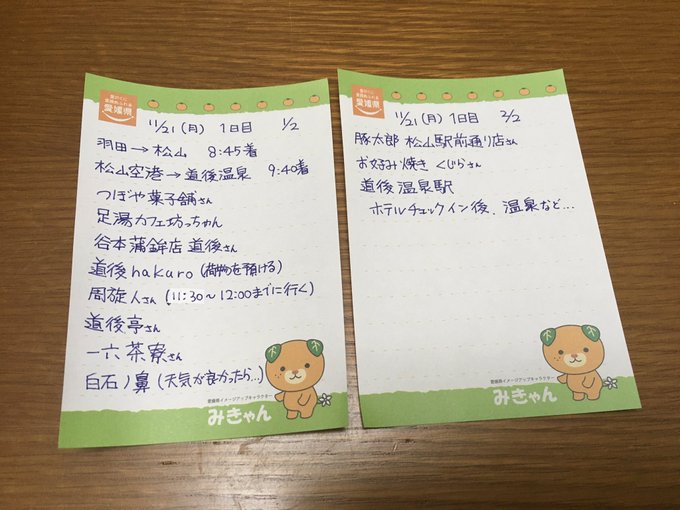 愛媛県
11/21(月) 1日目 1/2
羽田→松山 8:45着
松山空港→道後温泉 9:40着
つぼや菓子舗さん
足湯カフェ坊っちゃん
谷本蒲鉾店 道後さん
道後hakuro(荷物を預ける)
周旋人さん(11:30~12:00までに行く)
道後亭さん
一六茶寮さん
白石ノ鼻(天気が良かったら...)
愛媛県イメージアップキャラクター
みきゃん
愛媛県
11/21(月) 1日目 2/2
豚太郎 松山駅前通り店さん
お好み焼き くじらさん
道後温泉駅
ホテルチェックイン後、温泉など...
愛媛県イメージアップキャラクター
みきゃん